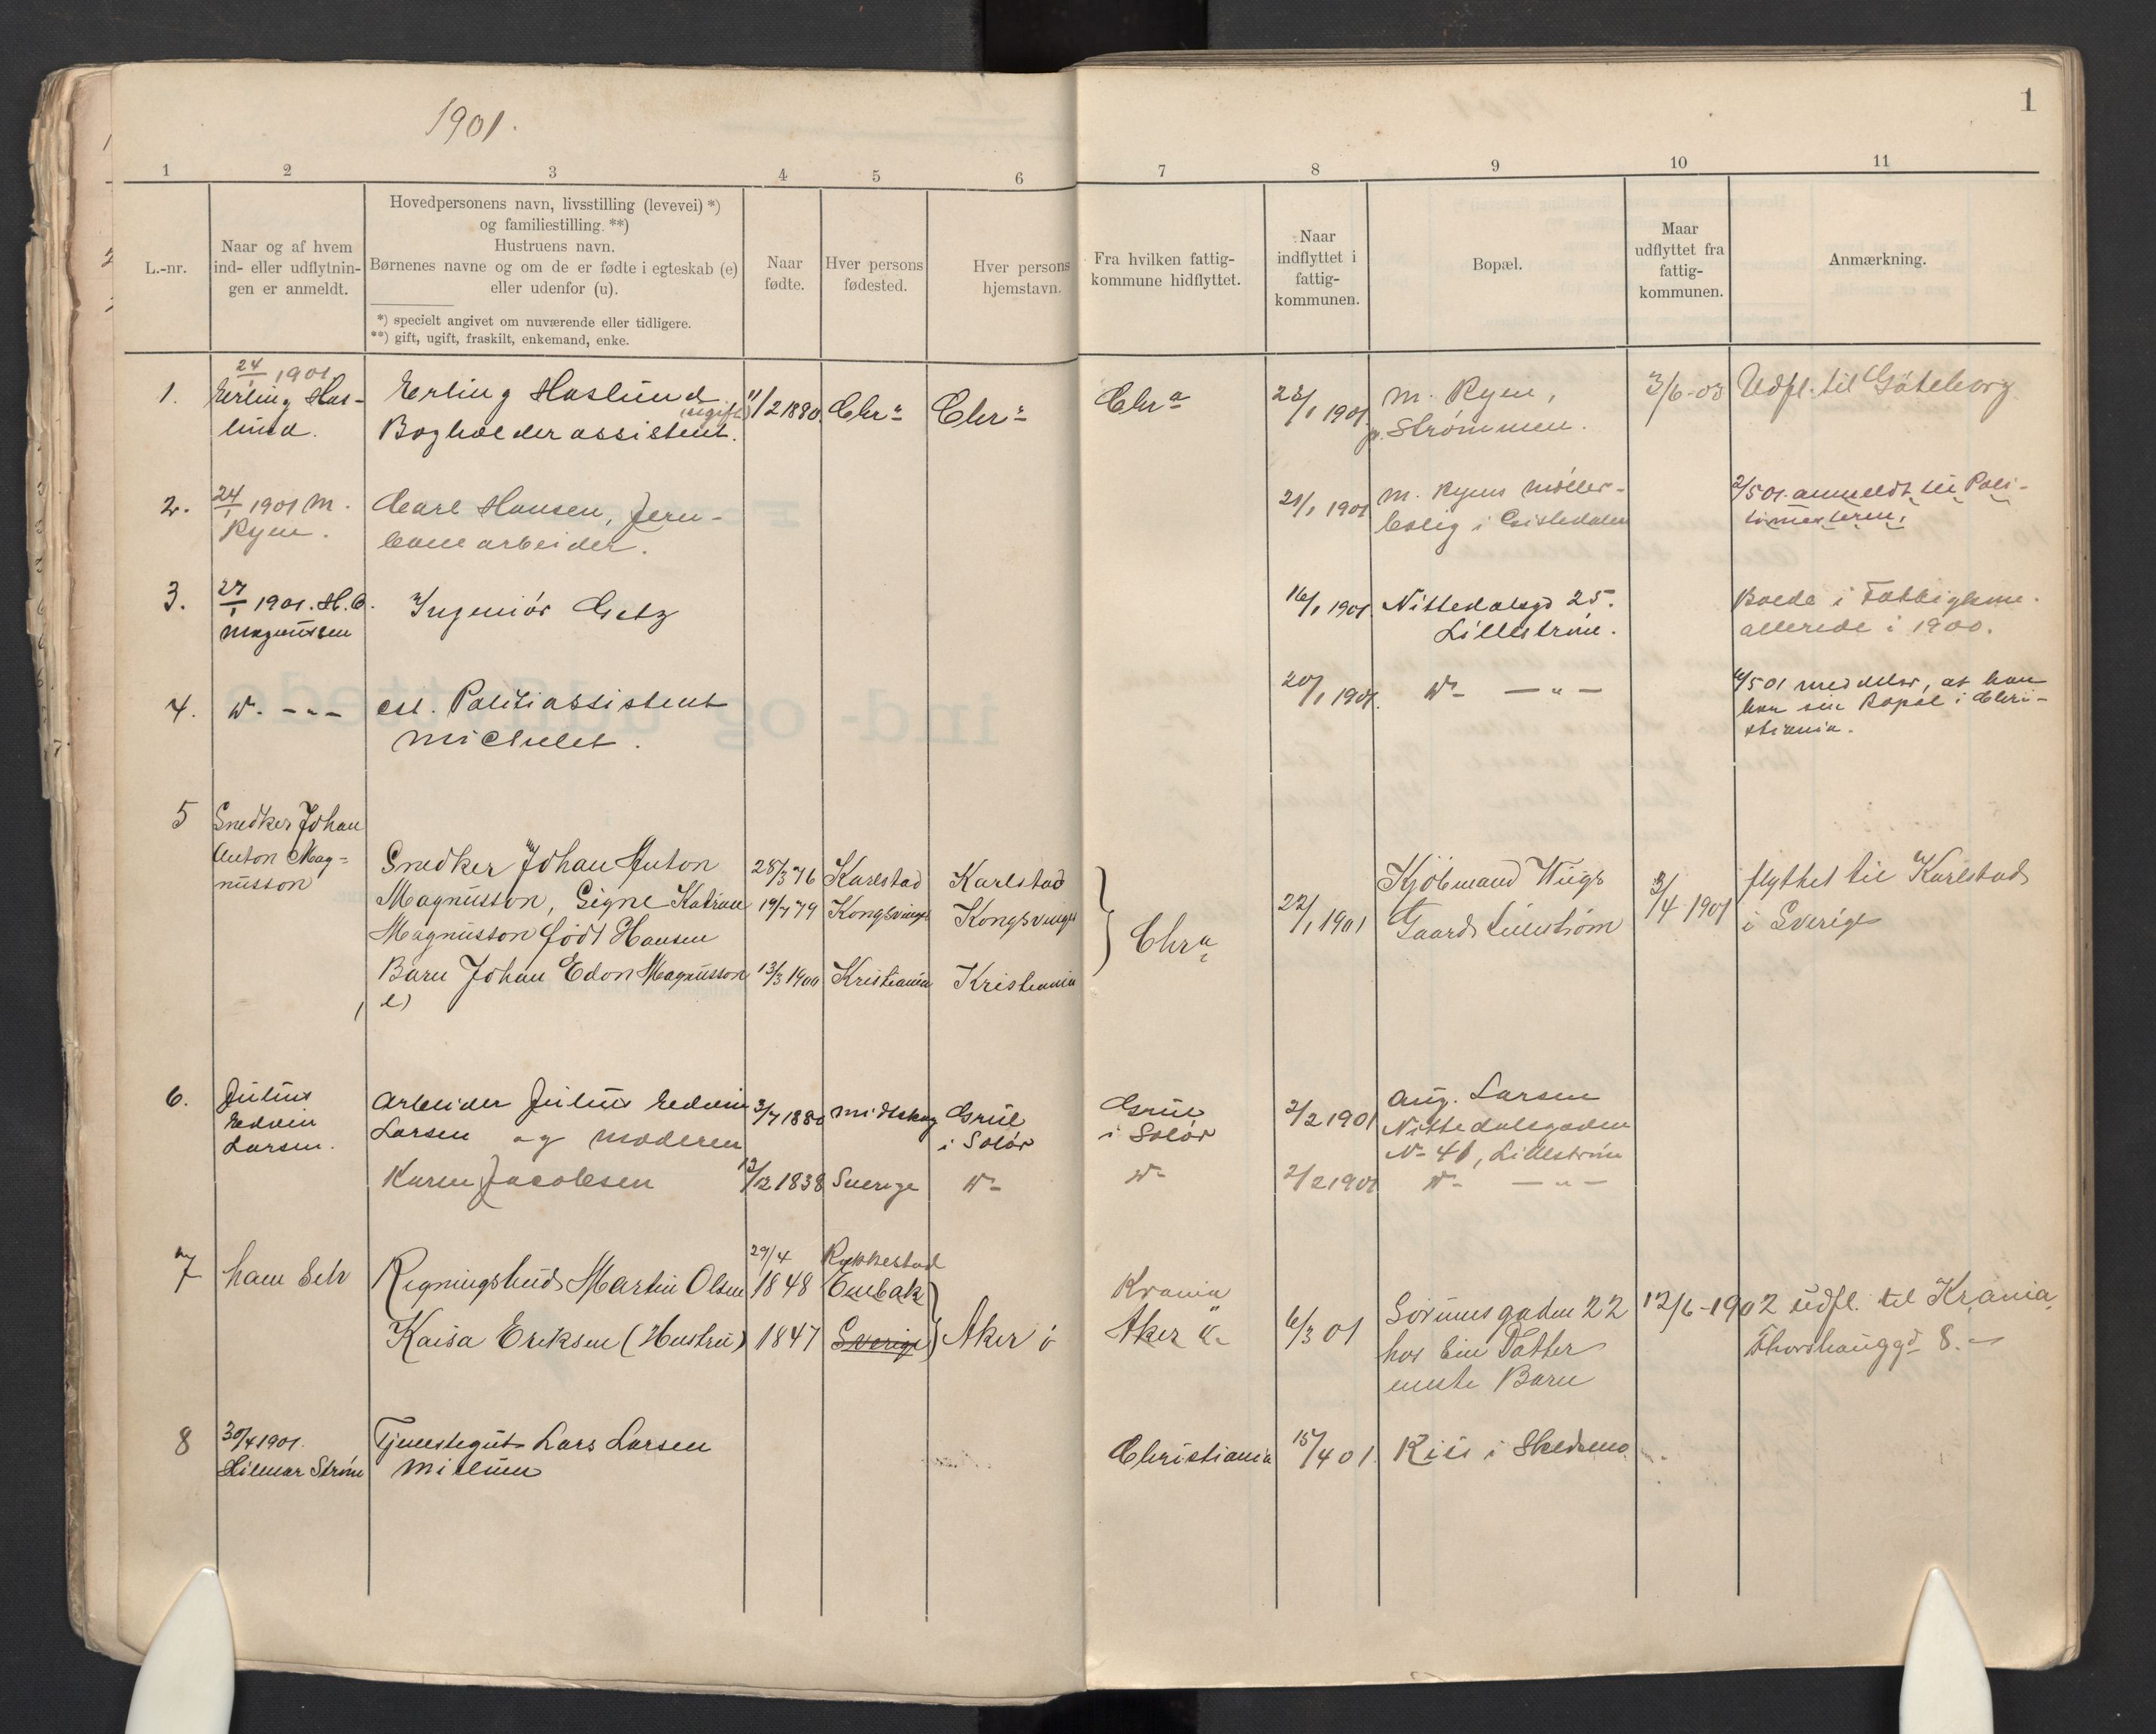 1901.
1
1 2 3 4 5 6 7 8 9 10 11
L.-nr.
Naar og af hvem
ind- eller udflytnin-
gen er anmeldt.
Hovedpersonens navn, livsstilling (levevei) *)
og familiestilling. **)
Hustruens navn.
Børnenes navne og om de er fødte i egteskab (e)
eller udenfor (u).
*) specielt angivet om nuværende eller tidligere.
**) gift, ugift, fraskilt, enkemand, enke.
Naar
fødte.
Hver persons
fødested.
Hver persons
hjemstavn.
Fra hvilken fattig-
kommune hidflyttet.
Naar
indflyttet i
fattig-
kommunen.
Bopæl.
Maar
udflyttet fra
fattig-
kommunen.
Anmærkning.
1.
24/1 1901
Erling Has-
lund.
Erling Haslund
(ugift)
Bogholderassistent.
11/2 1880.
Chra
Chra
Chra
22/1 1901.
M. Ryen,
pr. Strømmen.
3/6-03
Udfl. til Göteborg
2.
24/1 1901 M.
Ryen.
Carl Hansen, Jern-
banearbeider.
21/1 1901
M. Ryens møller-
bolig i
2/5 01. anmeldt til Poli-
timesteren.
3.
27/1 1901. H. O.
Magnussen
Ingeniør Getz
16/1 1901
Nittedalsgd 25.
Lillestrøm.
Boede i Fattigkom.
allerede i 1900.
4.
Do - " -
cst. Politiassistent
Michelet.
20/1 1901.
Do - " -
/5 01 meddeler, at han
har sin Bopæl i Chri-
stiania.
5
Snedker Johan
Anton Mag=
nusson
Snedker Johan Anton
Magnusson, Signe Katrine
Magnusson født Hansen
Barn Johan Edon Magnusson
(e)
28/3 76
19/7 79
13/3 1900
Karlstad
Kongsvinger
Kristiania
Karlstad
Kongsvinger
Kristiania
Chra
22/1 1901
Kjøbmand Wiigs
Gaard Lillestrøm
3/4 1901
flyttet til Karlstad
i Sverige
6.
Julius
Edvin
Larsen.
Arbeider Julius Edvin
Larsen og moderen
Karen Jacobsen
3/7 1880
12/12 1838
Midtskog
Sverige
Grue
i Solør
Do
Grue
i Solør
Do
2/2 1901
2/2 1901
Aug. Larsen
Nittedalsgaden
No 41, Lillestrøm
Do - " -
7
ham Selv
Regningsbud Martin Olsen
Kaisa Eriksen (Hustru)
29/4
1848
1847
Enebak
Sverige
Aker
Krania
Aker
6/3 01
Sørumsgaden 22
hos Sin Datter
Barn
12/6-1902
udfl. til Krania
8.
8
30/4 1901.
Hilmar Strøm
Tjenestegut Lars Larsen
Christiania
15/4 01.
Riis i Skedsmo